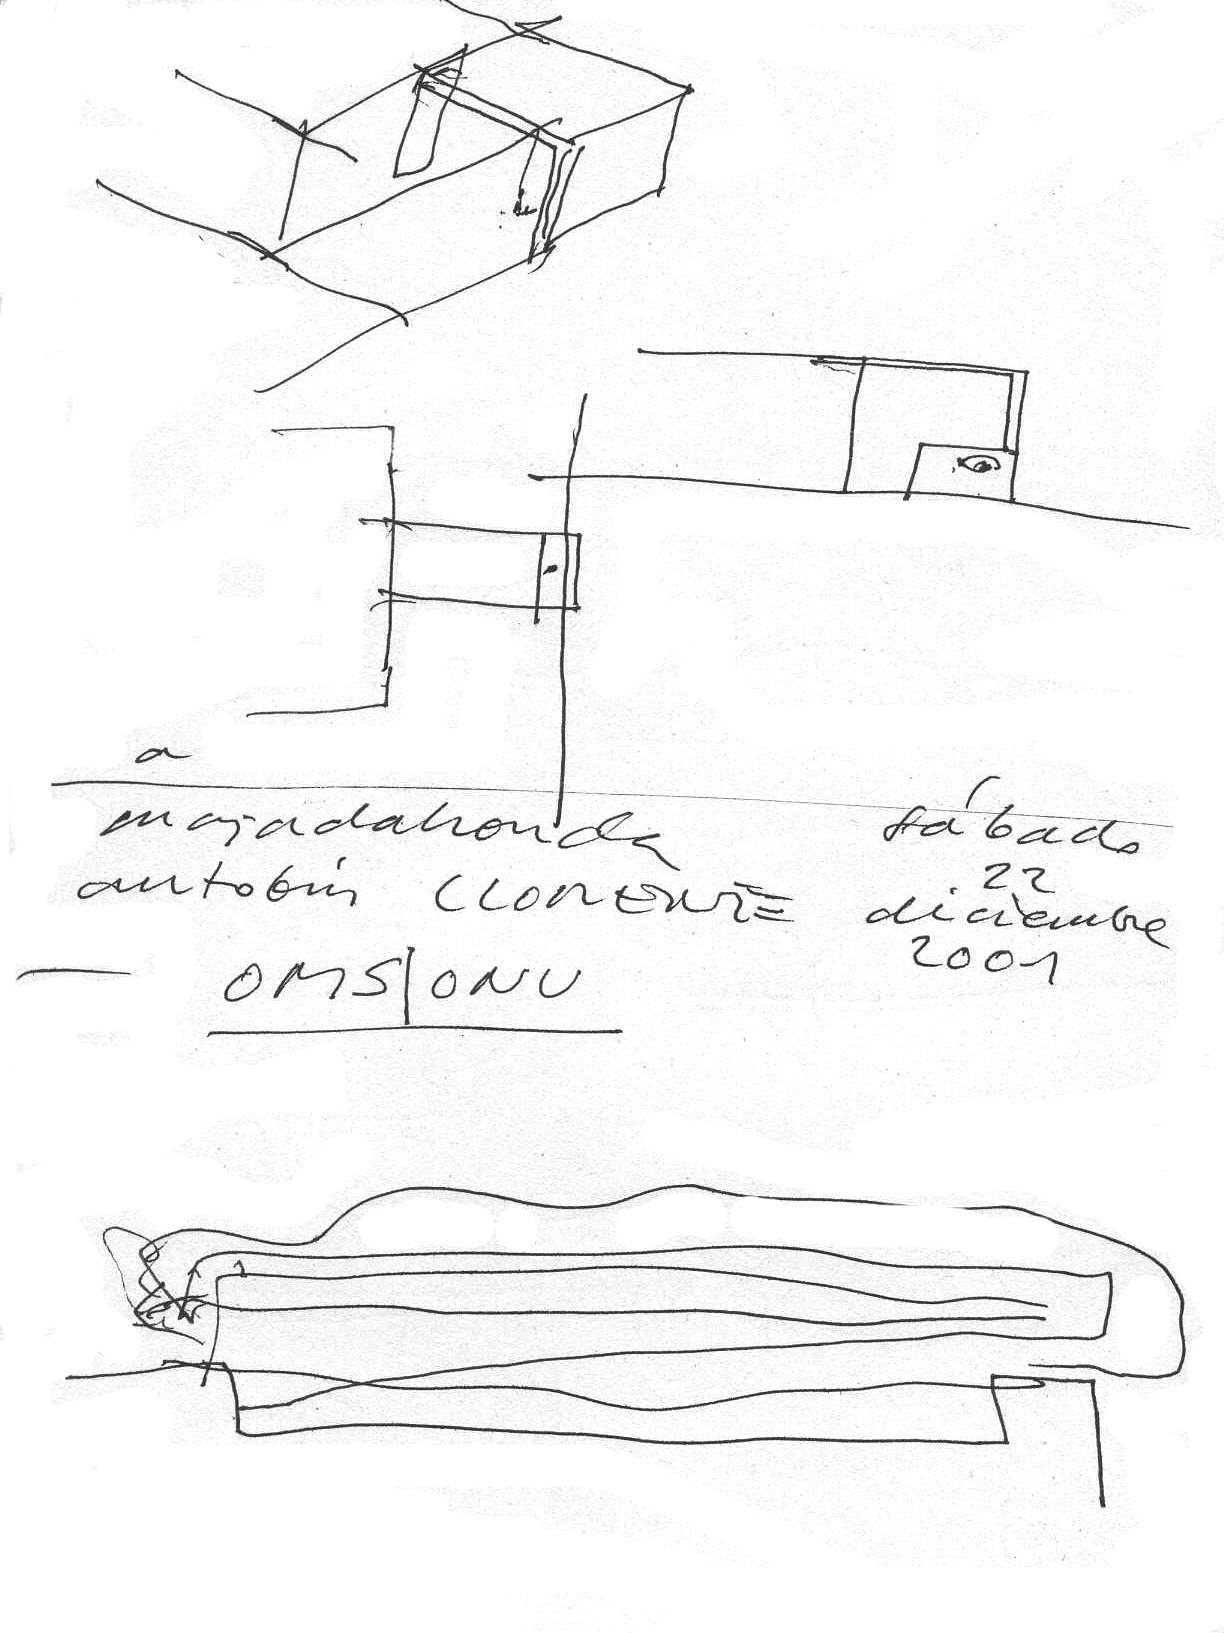 a
majadahonda
autobús LLORENTE
sábado
22
diciembre
2001
OMS|ONU